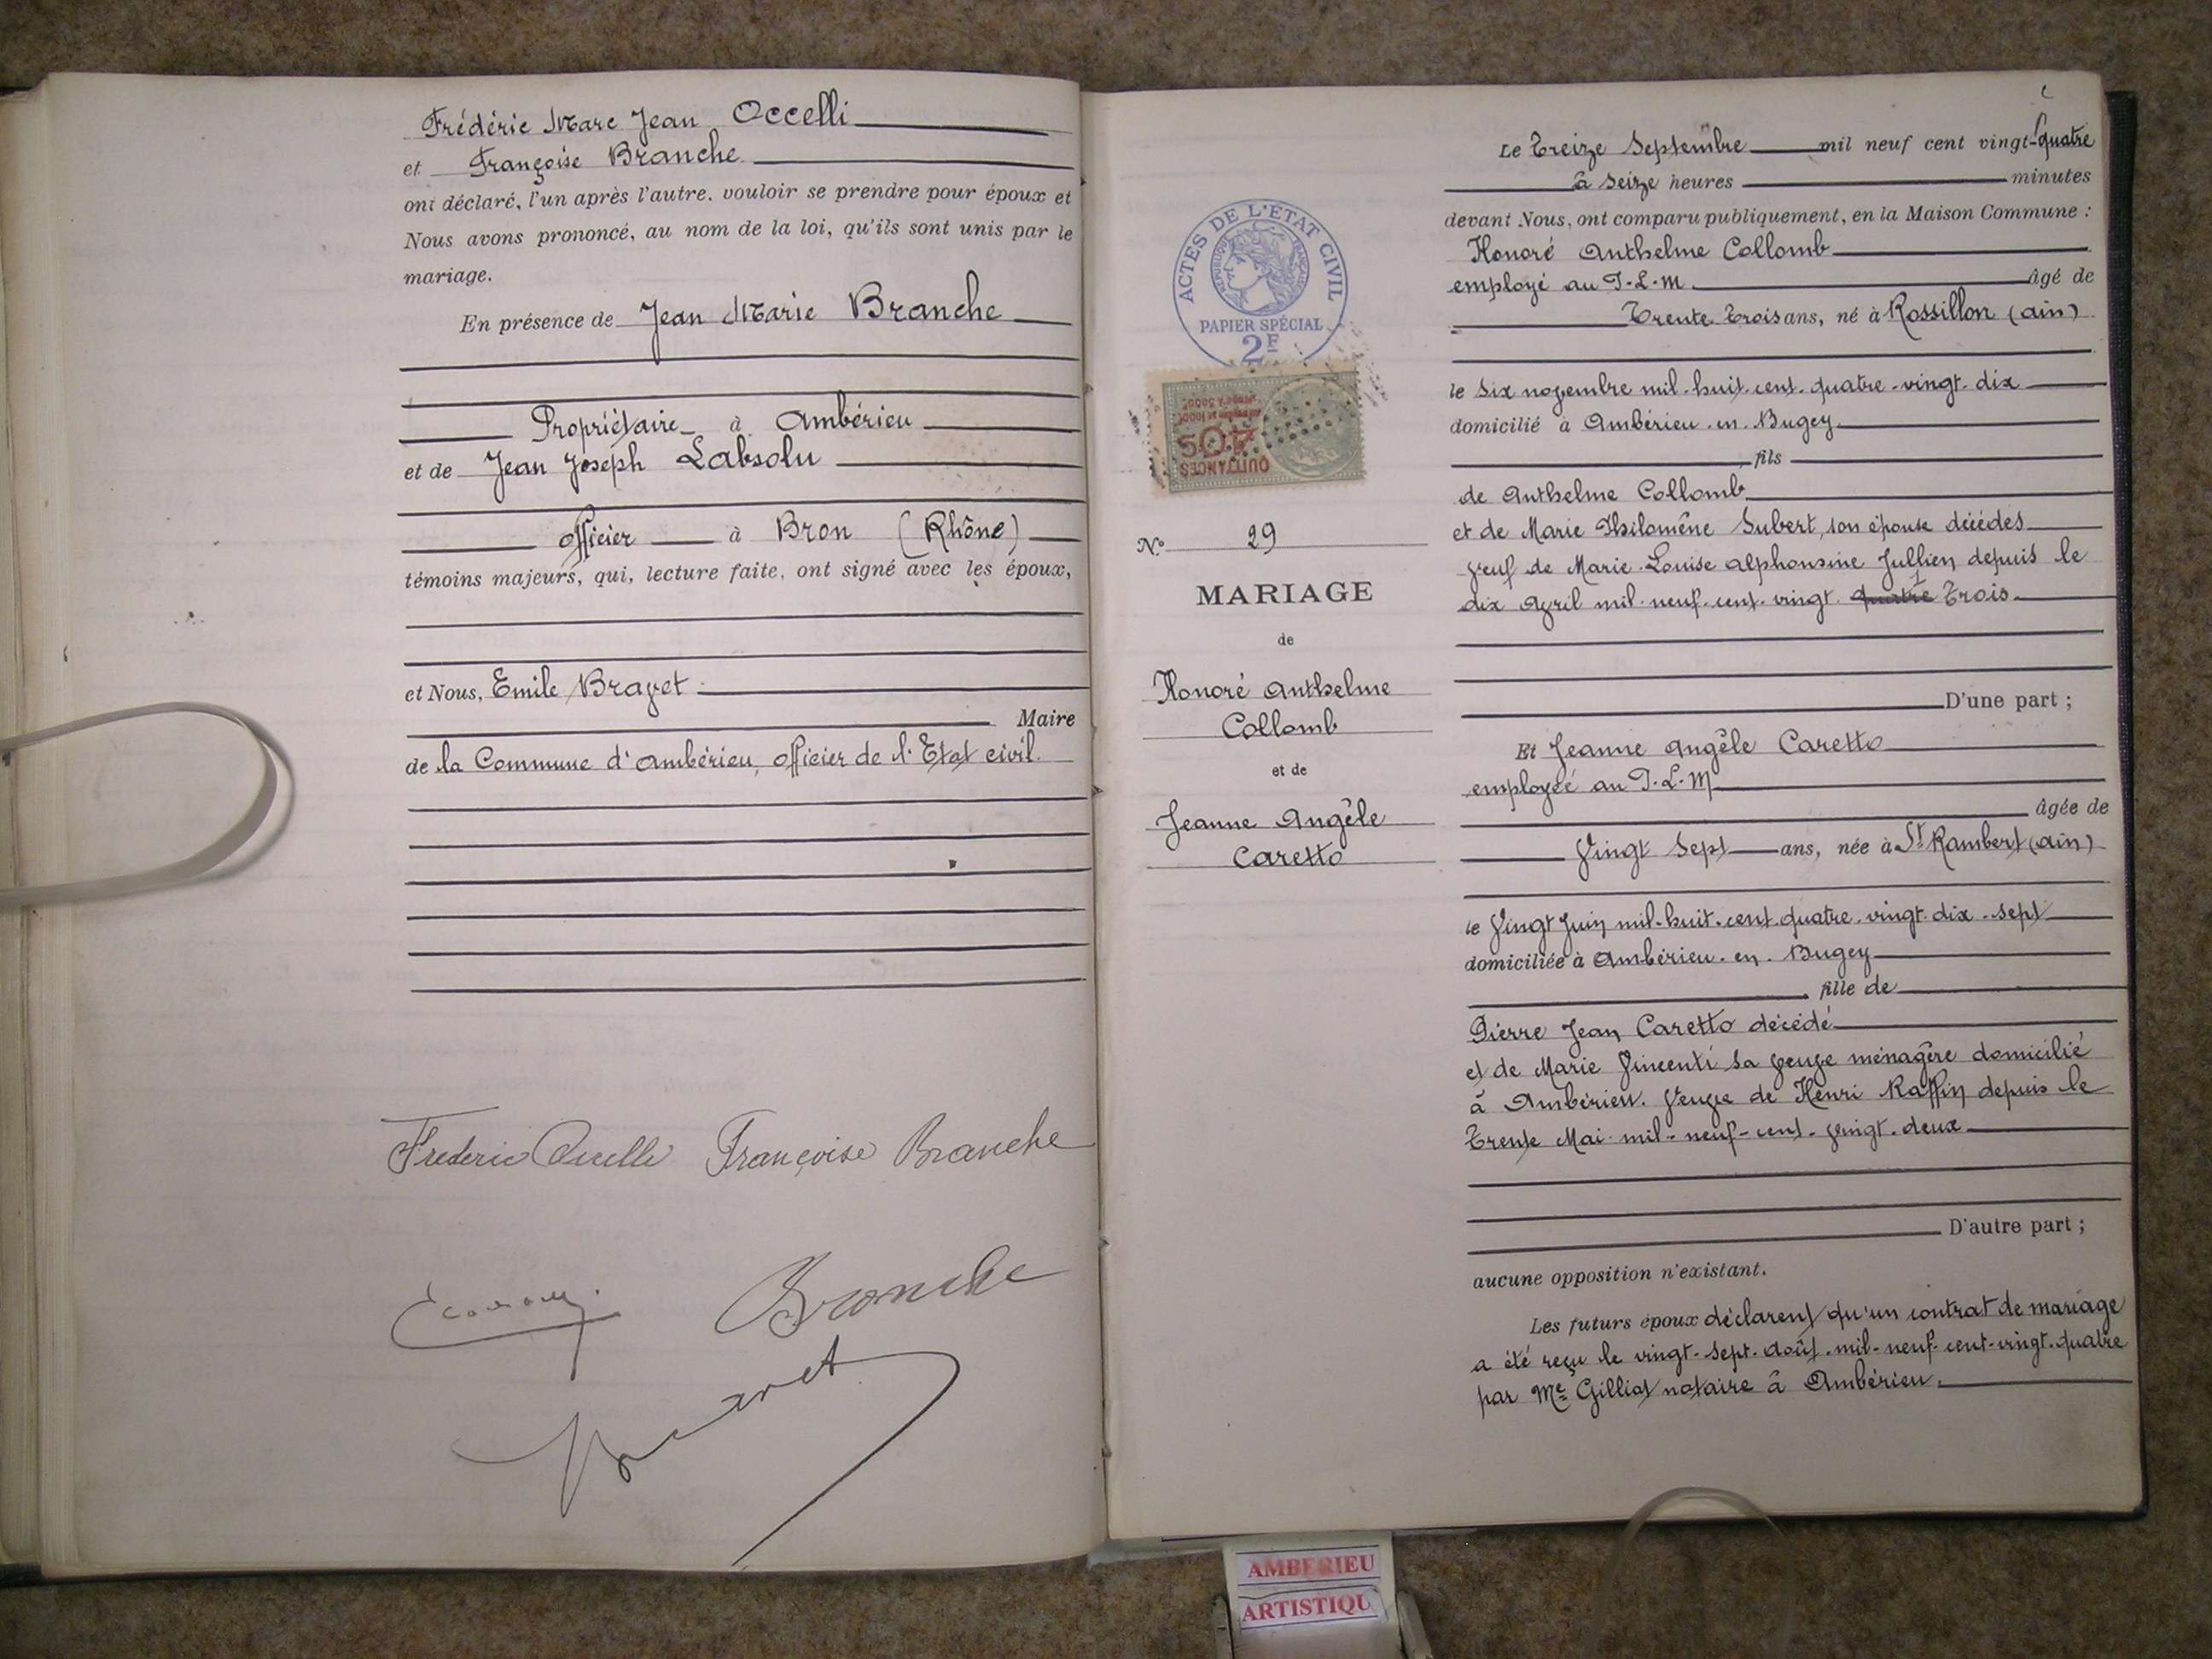 Frédéric Marc Jean Occelli
et Françoise Branche
ont déclaré, l'un après l'autre, vouloir se prendre pour époux et
Nous avons prononcé, au nom de la loi, qu'ils sont unis par le
mariage.
En présence de Jean Marie Branche
Propriétaire à Ambérieu
et de Jean Joseph Labsolu
officier à Bron (Rhône)
témoins majeurs, qui, lecture faite, ont signé avec les époux,
et Nous, Emile Bravet
Maire
de la Commune d'Ambérieu, officier de l'Etat civil.
Frederic Occelli Françoise Branche
Branche
Bravet
ACTES DE L'ÉTAT CIVIL
RÉPUBLIQUE FRANÇAISE
PAPIER SPÉCIAL
2F
QUITTANCES
No 29
MARIAGE
de
Honoré Anthelme
Collomb
et de
Jeanne Angèle
Caretto
Le Treize Septembre mil neuf cent vingt-quatre
à Seize heures minutes
devant Nous, ont comparu publiquement, en la Maison Commune :
Honoré Anthelme Collomb
employé au P.L.M. âgé de
Trente Trois ans, né à Rossillon (Ain)
le Six novembre mil-huit-cent-quatre-vingt-dix
domicilié à Ambérieu-en-Bugey
fils
de Anthelme Collomb
et de Marie Philomène Subert, son épouse décédés
veuf de Marie-Louise Alphonsine Jullien depuis le
dix Avril mil-neuf-cent-vingt quatre Trois
D'une part ;
Et Jeanne Angèle Caretto
employée au P.L.M
âgée de
Vingt Sept ans, née à St Rambert (Ain)
le Vingt Juin mil-huit-cent-quatre-vingt-dix-sept
domiciliée à Ambérieu-en-Bugey
fille de
Pierre Jean Caretto décédé
et de Marie Vincenti sa veuve ménagère domicilié
à Ambérieu. Veuve de Henri Raffin depuis le
Trente Mai mil-neuf-cent-vingt-deux
D'autre part ;
aucune opposition n'existant.
Les futurs époux déclarent qu'un contrat de mariage
a été reçu le vingt-sept-Août-mil-neuf-cent-vingt-quatre
par Me Gilliat notaire à Ambérieu.
AMBERIEU
ARTISTIQU